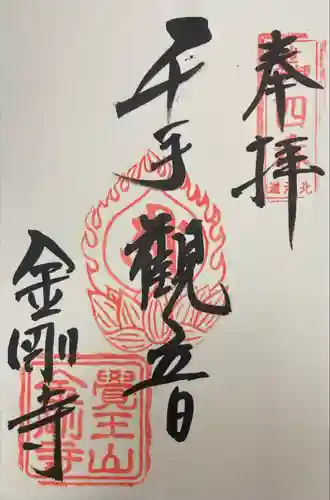 奉拝
北海道
千手観音
金剛寺
覺王山
金剛寺